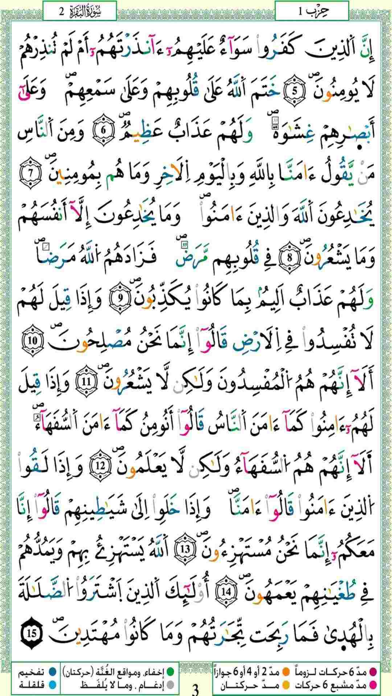 2 سورة البقرة حزب 1
إِنَّ اَ۬لذِينَ كَفَرُواْ سَوَآءٌ عَلَيْهِمُۥٓ ءَآنذَرْتَهُمُۥٓ أَمْ لَمْ تُنذِرْهُمْ
لَا يُومِنُونَۖ 5 خَتَمَ اَ۬للَّهُ عَلَىٰ قُلُوبِهِمْ وَعَلَىٰ سَمْعِهِمْۖ وَعَلَىٰٓ
أَبْصٰ۪رِهِمْ غِشَٰوَةٌۖ وَلَهُمْ عَذَابٌ عَظِيمٌۖ 6 وَمِنَ اَ۬لنَّاسِ
مَنْ يَّقُولُ ءَامَنَّا بِاللَّهِ وَبِالْيَوْمِ اِ۬لَاخِرِ وَمَا هُم بِمُومِنِينَۖ 7
يُخَٰدِعُونَ اَ۬للَّهَ وَالذِينَ ءَامَنُواْۖ وَمَا يُخَٰدِعُونَ إِلَّآ أَنفُسَهُمْ
وَمَا يَشْعُرُونَۖ 8 فِے قُلُوبِهِم مَّرَضٌۖ فَزَادَهُمُ اُ۬للَّهُ مَرَضاًۖ
وَلَهُمْ عَذَابٌ اَلِيمُۢ بِمَا كَانُواْ يُكَذِّبُونَۖ 9 وَإِذَا قِيلَ لَهُمْ
لَا تُفْسِدُواْ فِے اِ۬لَارْضِ قَالُوٓاْ إِنَّمَا نَحْنُ مُصْلِحُونَۖ 10
أَلَآ إِنَّهُمْ هُمُ اُ۬لْمُفْسِدُونَ وَلَٰكِن لَّا يَشْعُرُونَۖ 11 وَإِذَا قِيلَ
لَهُمُۥٓ ءَامِنُواْ كَمَآ ءَامَنَ اَ۬لنَّاسُ قَالُوٓاْ أَنُومِنُ كَمَآ ءَامَنَ اَ۬لسُّفَهَآءُۖ
أَلَآ إِنَّهُمْ هُمُ اُ۬لسُّفَهَآءُ وَلَٰكِن لَّا يَعْلَمُونَۖ 12 وَإِذَا لَقُواْ
اُ۬لذِينَ ءَامَنُواْ قَالُوٓاْ ءَامَنَّاۖ وَإِذَا خَلَوِاْ اِلَىٰ شَيَٰطِينِهِمْ قَالُوٓاْ إِنَّا
مَعَكُمُۥٓ إِنَّمَا نَحْنُ مُسْتَهْزِءُونَۖ 13 اَ۬للَّهُ يَسْتَهْزِئُ بِهِمْ وَيَمُدُّهُمْ
فِے طُغْيَٰنِهِمْ يَعْمَهُونَۖ 14 أُوْلَٰٓئِكَ اَ۬لذِينَ اَ۪شْتَرَوُاْ اُ۬لضَّلَٰلَةَ
بِالْهُد۪ىٰ فَمَا رَبِحَت تِّجَٰرَتُهُمْ وَمَا كَانُواْ مُهْتَدِينَۖ 15
مدّ 6 حركات لزوماً مدّ 2 أو 4 أو 6 جوازاً إخفاء، ومواقع الغُنَّة (حركتان) تفخيم
مدّ مشبع 6 حركات مدّ حركتان إدغام، وما لا يُلفَظ قلقلة
3